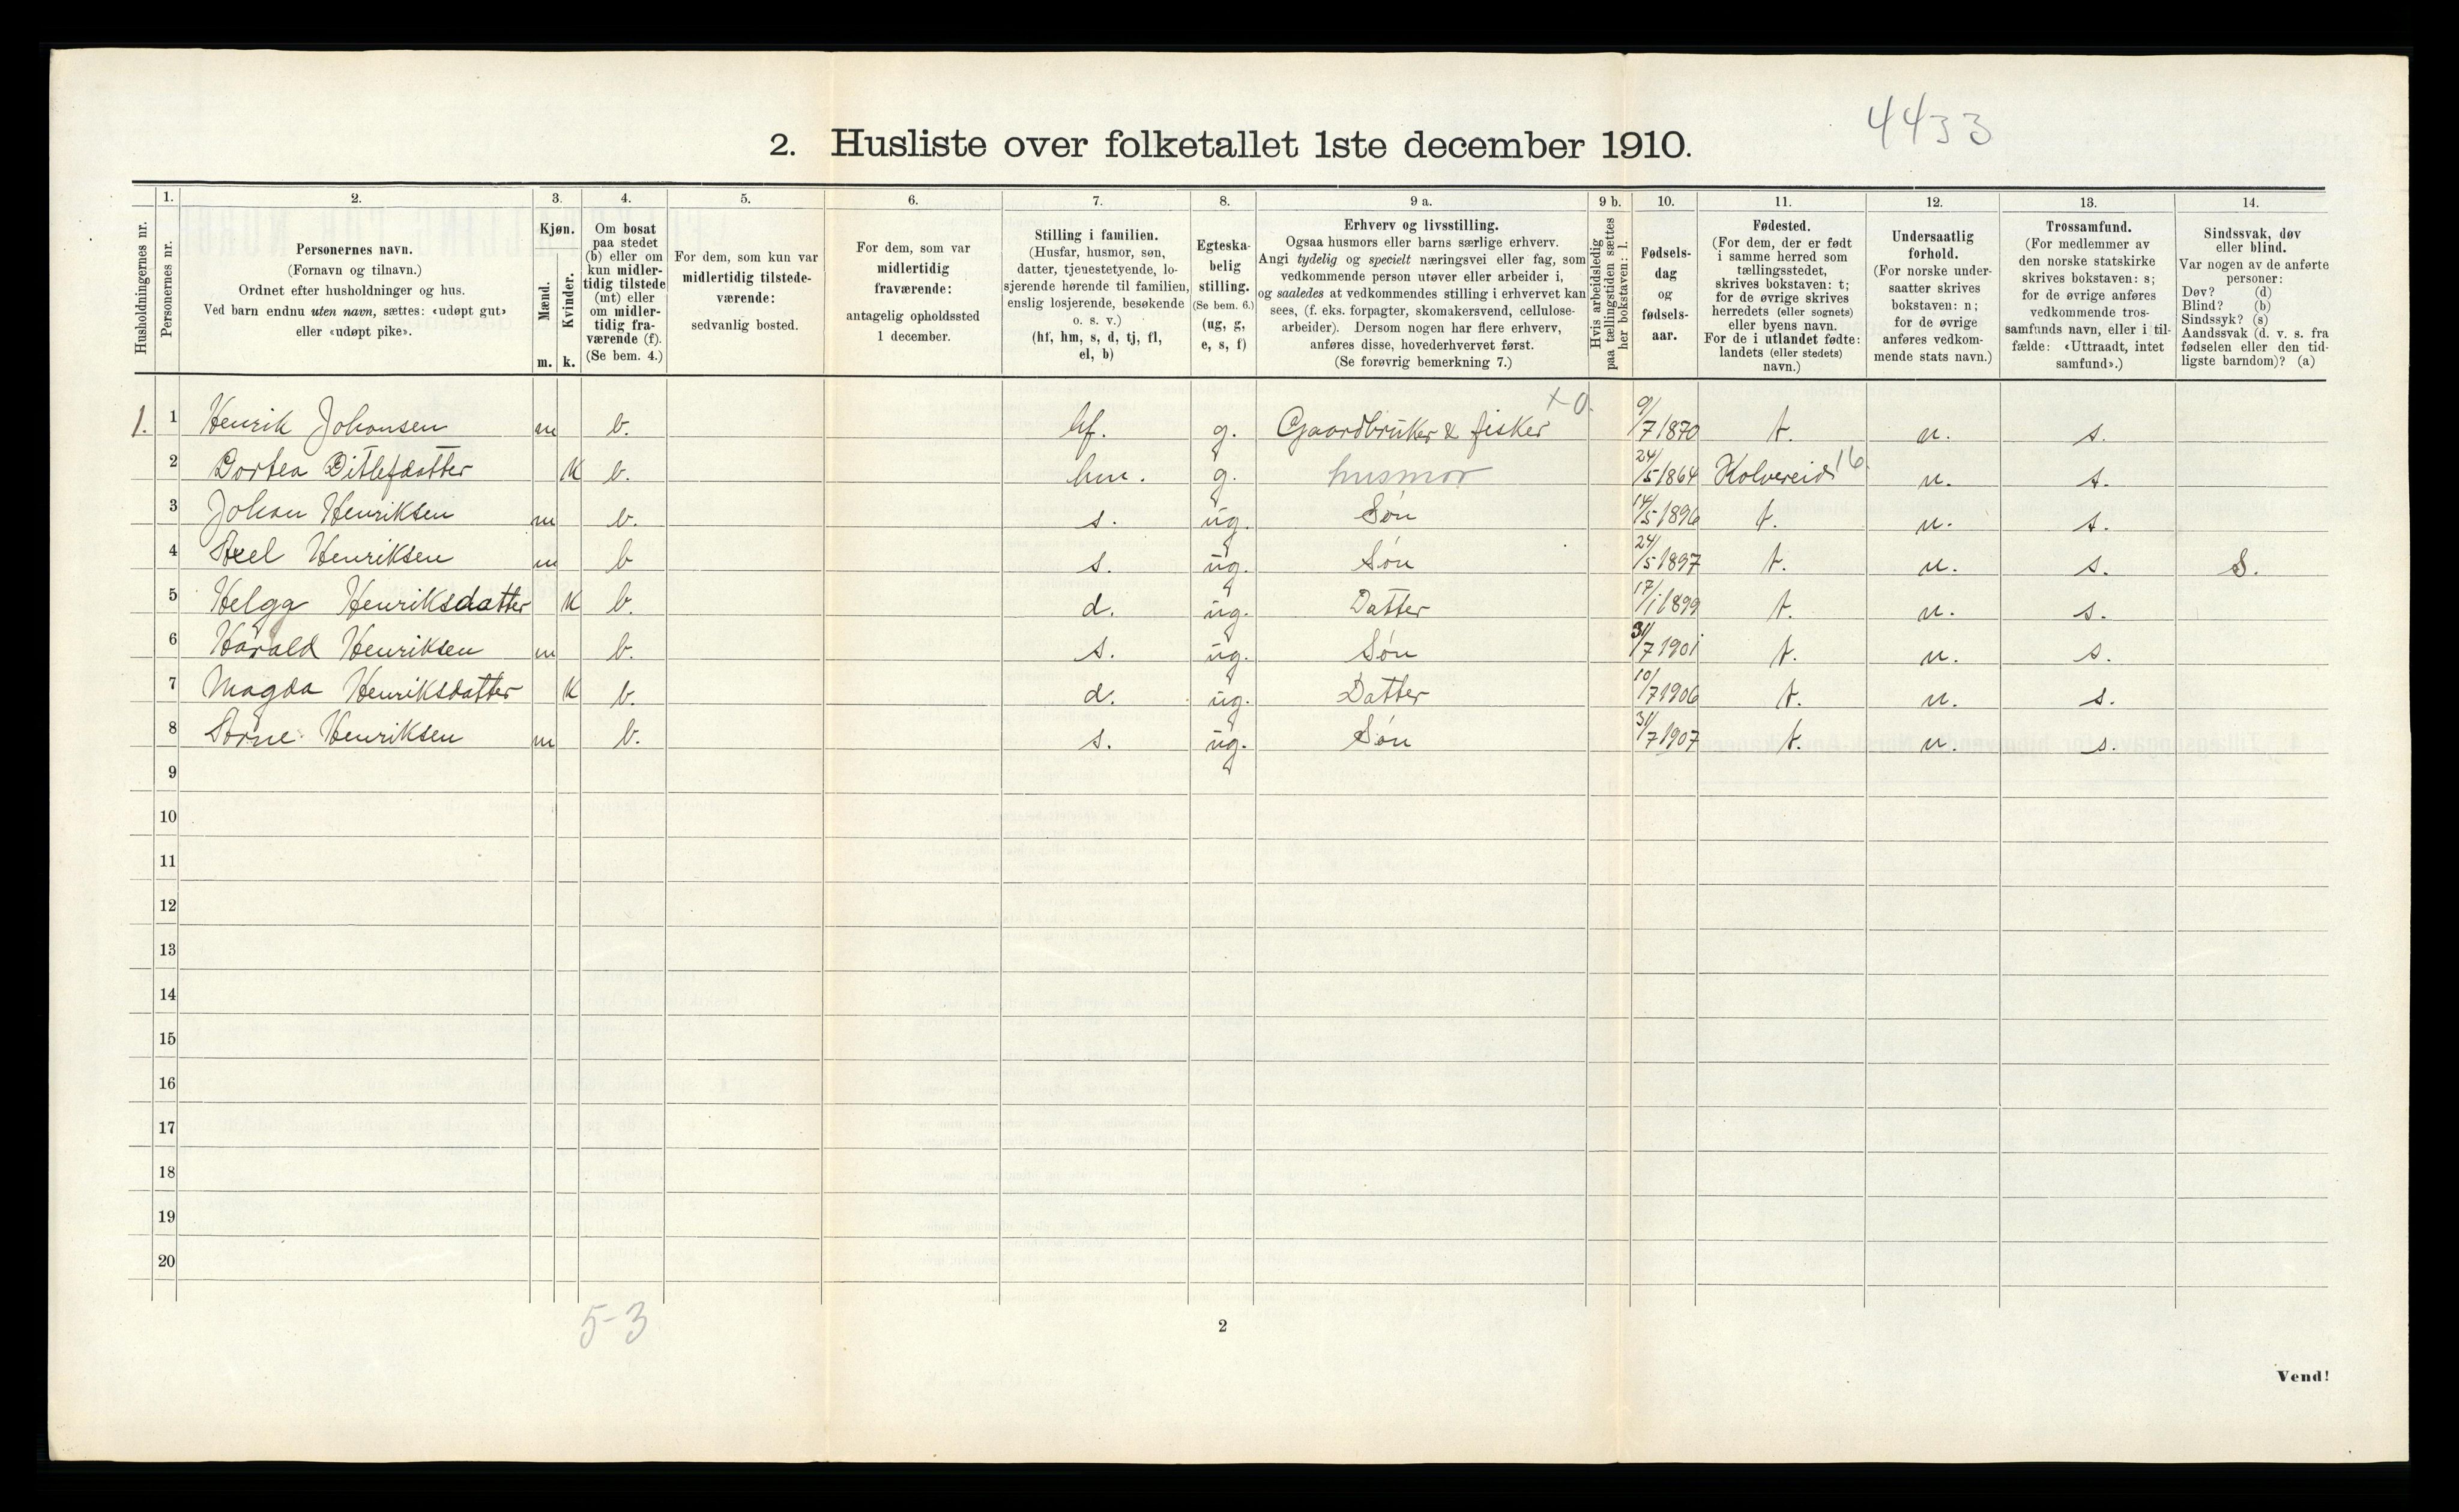 4433
2. Husliste over folketallet 1ste december 1910.
Husholdningernes nr.
1.
Personernes nr.
2.
Personernes navn.
(Fornavn og tilnavn.)
Ordnet efter husholdninger og hus.
Ved barn endnu uten navn, sættes: «udøpt gut»
eller «udøpt pike».
3.
Kjøn.
Mænd.
Kvinder.
m.
k.
4.
Om bosat
paa stedet
(b) eller om
kun midler-
tidig tilstede
(mt) eller
om midler-
tidig fra-
værende (f).
(Se bem. 4.)
5.
For dem, som kun var
midlertidig tilstede-
værende:
sedvanlig bosted.
6.
For dem, som var
midlertidig
fraværende:
antagelig opholdssted
1 december.
7.
Stilling i familien.
(Husfar, husmor, søn,
datter, tjenestetyende, lo-
sjerende hørende til familien,
enslig losjerende, besøkende
o. s. v.)
(hf, hm, s, d, tj, fl,
el, b)
8.
Egteska-
belig
stilling.
(Se bem. 6.)
(ug, g,
e, s, f)
9 a.
Erhverv og livsstilling.
Ogsaa husmors eller barns særlige erhverv.
Angi tydelig og specielt næringsvei eller fag, som
vedkommende person utøver eller arbeider i,
og saaledes at vedkommendes stilling i erhvervet kan
sees, (f. eks. forpagter, skomakersvend, cellulose-
arbeider). Dersom nogen har flere erhverv,
anføres disse, hovederhvervet først.
(Se forøvrig bemerkning 7.)
9 b.
Hvis arbeidsledig
paa tællingstiden sættes
her bokstaven: l.
10.
Fødsels-
dag
og
fødsels-
aar.
11.
Fødested.
(For dem, der er født
i samme herred som
tællingsstedet,
skrives bokstaven: t;
for de øvrige skrives
herredets (eller sognets)
eller byens navn.
For de i utlandet fødte:
landets (eller stedets)
navn.)
12.
Undersaatlig
forhold.
(For norske under-
saatter skrives
bokstaven: n;
for de øvrige
anføres vedkom-
mende stats navn.)
13.
Trossamfund.
(For medlemmer av
den norske statskirke
skrives bokstaven: s;
for de øvrige anføres
vedkommende tros-
samfunds navn, eller i til-
fælde: «Uttraadt, intet
samfund».)
14.
Sindssvak, døv
eller blind.
Var nogen av de anførte
personer:
Døv? (d)
Blind? (b)
Sindssyk? (s)
Aandssvak (d. v. s. fra
fødselen eller den tid-
ligste barndom)? (a)
1. 1 Henrik Johansen m b. hf. g. Gaardbruker & fisker x 0. 9/7 1870 t. n. s.
2 Dortea Ditlefdatter K b. hm. g. husmor 24/5 1864 Kolvereid 16. n. s.
3 Johan Henriksen m b. s. ug. Søn 14/5 1896 t. n. s.
4 Axel Henriksen m b s. ug. Søn 24/5 1897 t. n. s. S.
5 Helga Henriksdatter K b. d. ug. Datter 17/1 1899 t. n. s.
6 Harald Henriksen m b. s. ug. Søn 31/7 1901 t. n. s.
7 Magda Henriksdatter K b. d. ug. Datter 10/7 1906 t. n. s.
8 Arne Henriksen m b. s. ug. Søn 31/7 1907 t. n. s.
9
10
11
12
13
14
15
16
17
18
19
20
5-3
2
Vend!